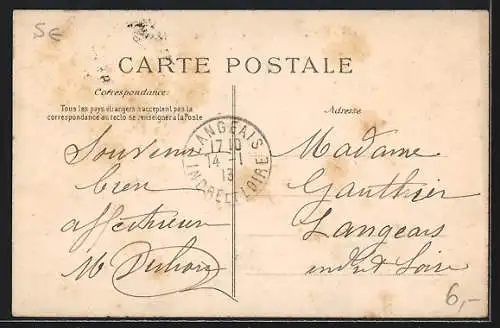 5€
CARTE POSTALE
Correspondance
Tous les pays étrangers n'acceptent pas la
correspondance au recto se renseigner à la Poste
Souvenir
bien
affectueux
M
LANGEAIS
17 10
14 - 1
13
INDRE ET LOIRE
Adresse
Madame
Gauthier
Langeais
indre et Loire
6,-